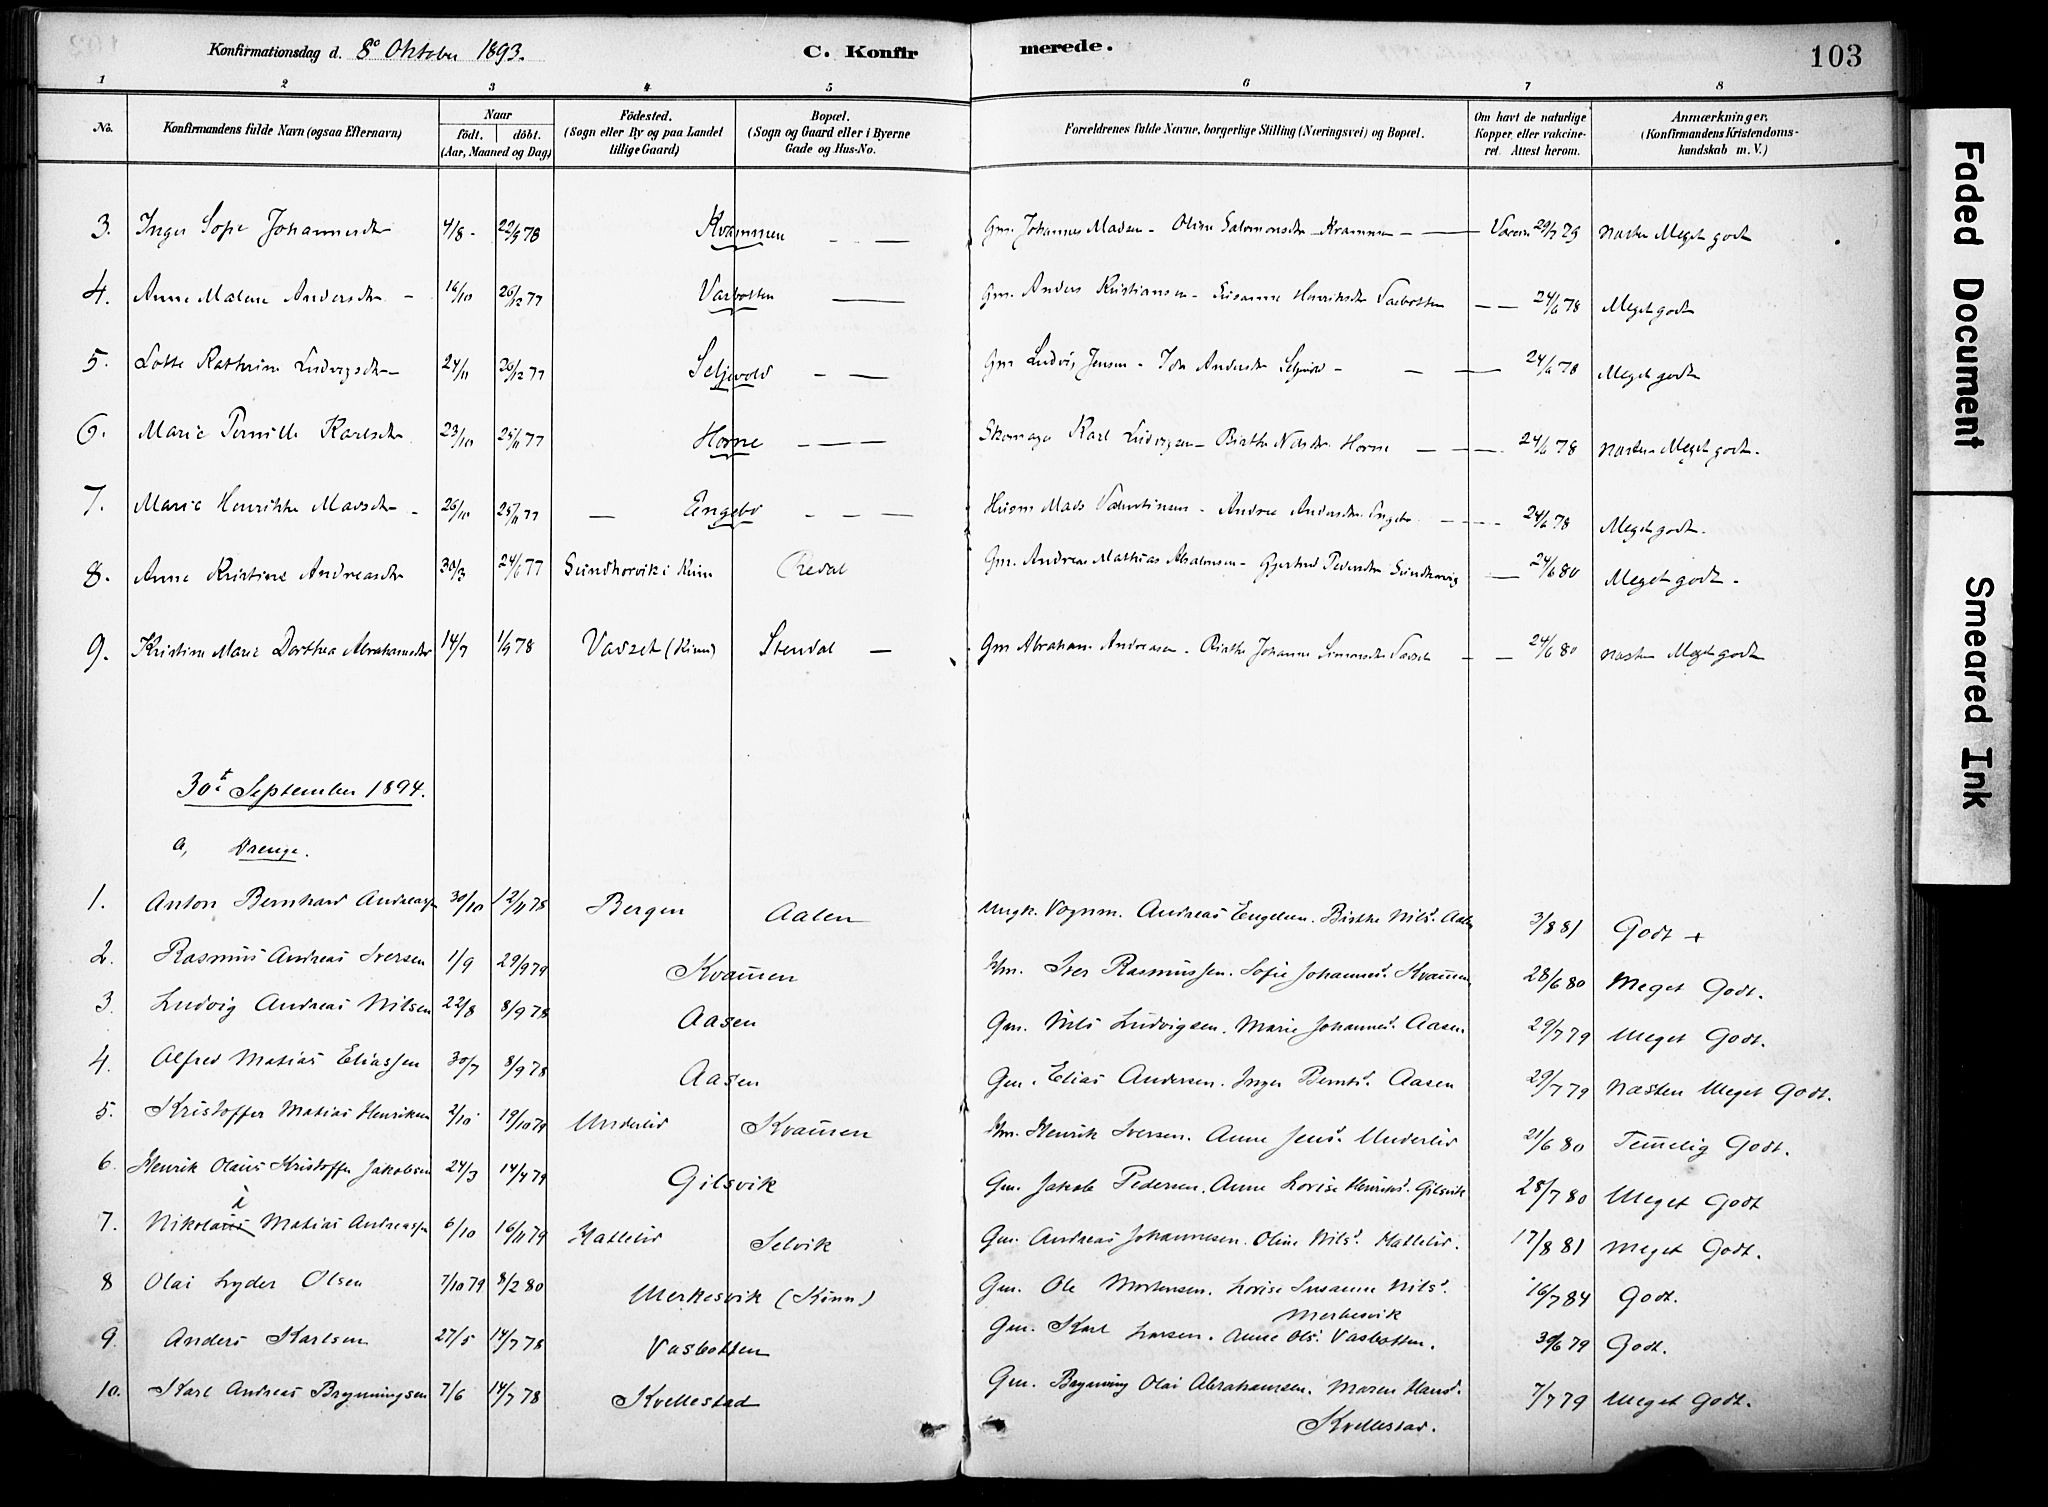 Konfirmationsdag d. 8º Oktober 1893.
C. Konfirmerede.
103
1 2 3 4 5 6 7 8
No.
Konfirmandens fulde Navn (ogsaa Efternavn)
Naar
födt. döbt.
(Aar, Maaned og Dag)
Födested.
(Sogn eller By og paa Landet
tillige Gaard)
Bopæl.
(Sogn og Gaard eller i Byerne
Gade og Hus-No.
Forældrenes fulde Navne, borgerlige Stilling (Næringsvei) og Bopæl.
Om havt de naturlige
Kopper, eller vakcine-
ret. Attest herom.
Anmærkninger.
(Konfirmandens Kristendoms-
kundskab m. V.)
3. Inger Sofie Johannesdtr 4/8 - 22/9 78 Kvammen - — Gm. Johannes Madsen - Oline Salomonsdtr - Kvammen - — 29/7 79 Næsten Meget godt
4. Anne Malene Andersdtr - 16/10 26/12 77 Vasbotten — Gm. Anders Kristiansen - Susanne Henriksdtr Vasbotten — 24/6 78 Meget godt
5. Lotte Kathrine Ludvigsdtr - 24/11 26/12 77 Seljevold - — Gm Ludvig Jensen - Ida Andersdtr Seljevold - - — 24/6 78 Meget godt
6. Marie Pernille Karlsdtr 23/10 25/11 77 Horne - — — Skomager Karl Ludvigsen - Birthe Nilsdtr. Horne — — 24/6 78 Næsten Meget godt.
7. Marie Henrikke Madsdtr - 26/10 25/11 77 — Engebø - - — Husm Mads Valentinsen - Andrea Andersdtr. Engebø - — 24/6 78 Meget godt.
8. Anne Kristine Andreasdtr 30/3 24/6 77 Sundhorvik i Kinn Redal Gm. Andreas Mathias Absalonsen - Gjertrud Pedersdtr Sundhorvig — 24/6 80 Meget godt -
9. Kristine Marie Dorthea Abrahamsdtr 14/7 1/9 78 Vadset (Kinn) Stendal — Gm Abraham Andreasen - Birthe Johanne Simonsdtr Vadset — — 24/6 80 Næsten Meget godt
30t September 1894.
a, Drenge.
1. Anton Bernhard Andreassen 30/10 12/11 78 Bergen Aalen Ungk. Vognm. Andreas Engelsen. Birthe Nilsd. Aalen 3/8 81 Godt +
2. Rasmus Andreas Iversen 1/9 29/9 79 Kvamen Hm. Iver Rasmussen. Sofie Johannesd. Kvamen 28/6 80 Meget Godt.
3. Ludvig Andreas Nilsen 22/8 8/9 78 Aasen Gm. Nils Ludvigsen. Marie Johannesd. Aasen. 29/7 79 Meget Godt.
4. Alfred Matias Eliassen 30/7 8/9 78 Aasen Gm. Elias Andersen. Inger Berntsd. Aasen 29/7 79 Næsten Meget Godt.
5. Kristoffer Matias Henriksen 2/10 19/10 79 Underlid Kvamen Hm. Henrik Iversen. Anne Jensd. Underlid 21/6 80 Temelig Godt.
6. Henrik Olaus Kristoffer Jakobsen 24/3 14/4 79 Gilsvik Gm. Jakob Pedersen. Anne Lovise Henriksd. Gilsvik 28/7 80 Meget Godt
7. Nikolai Matias Andreassen 6/10 16/11 79 Hatlelid Selvik Gm. Andreas Johannesen. Oline Nilsd. Hatlelid. 17/8 81 Meget Godt.
8 Olai Lyder Olsen 7/10 79 8/2 80 Merkesvik (Kinn) Gm. Ole Mortensen. Lovise Susanne Nilsd. Merkesvik 16/7 84 Godt.
9. Anders Karlsen 27/5 14/7 78 Vasbotten Gm. Karl Larsen. Anne Olsd. Vasbotten. 30/6 79 Godt.
10. Karl Andreas Brynningsen 7/6 14/7 78 Kvellestad Gm. Brynning Olai Abrahamsen. Maren Hansd. 7/7 79 Meget Godt.
Kvellestad.
Faded Document
Smeared Ink